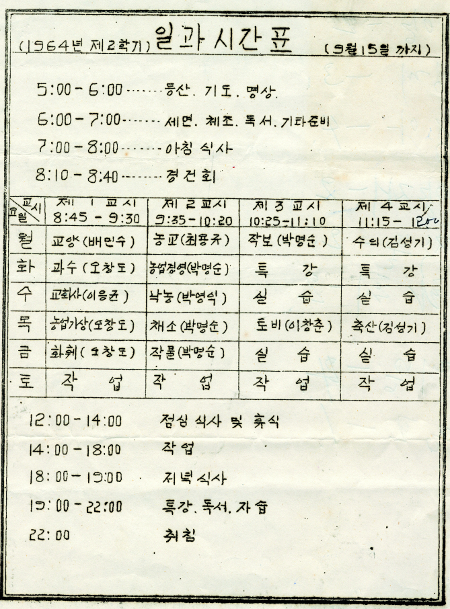 (1964년 제2학기) 일과시간표 (9월15일 까지)
5:00-6:00······등산. 기도. 명상.
6:00-7:00······세면. 체조. 독서. 기타준비
7:00-8:00······아침 식사
8:10-8:40······경건회
교시 요일 제 1 교시 8:45-9:30 제 2 교시 9:35-10:20 제 3 교시 10:25-11:10 제 4 교시 11:15-1200
월 교양(배민수) 농교( 작보(박명순) 수의(김성기)
화 과수(오창도) 농업경영(박명순) 특 강 특 강
수 교회사(이응균) 낙농(박영식) 실 습 실 습
목 농업가상(오창도) 채소(박명순) 토비(이창춘) 축산(김성기)
금 화훼(오창도) 작물(박명순) 실 습 실 습
토 작 업 작 업 작 업 작 업
12:00-14:00 점심 식사 및 휴식
14:00-18:00 작업
18:00-19:00 저녁 식사
19:00-22:00 특강. 독서. 자습
22:00 취침